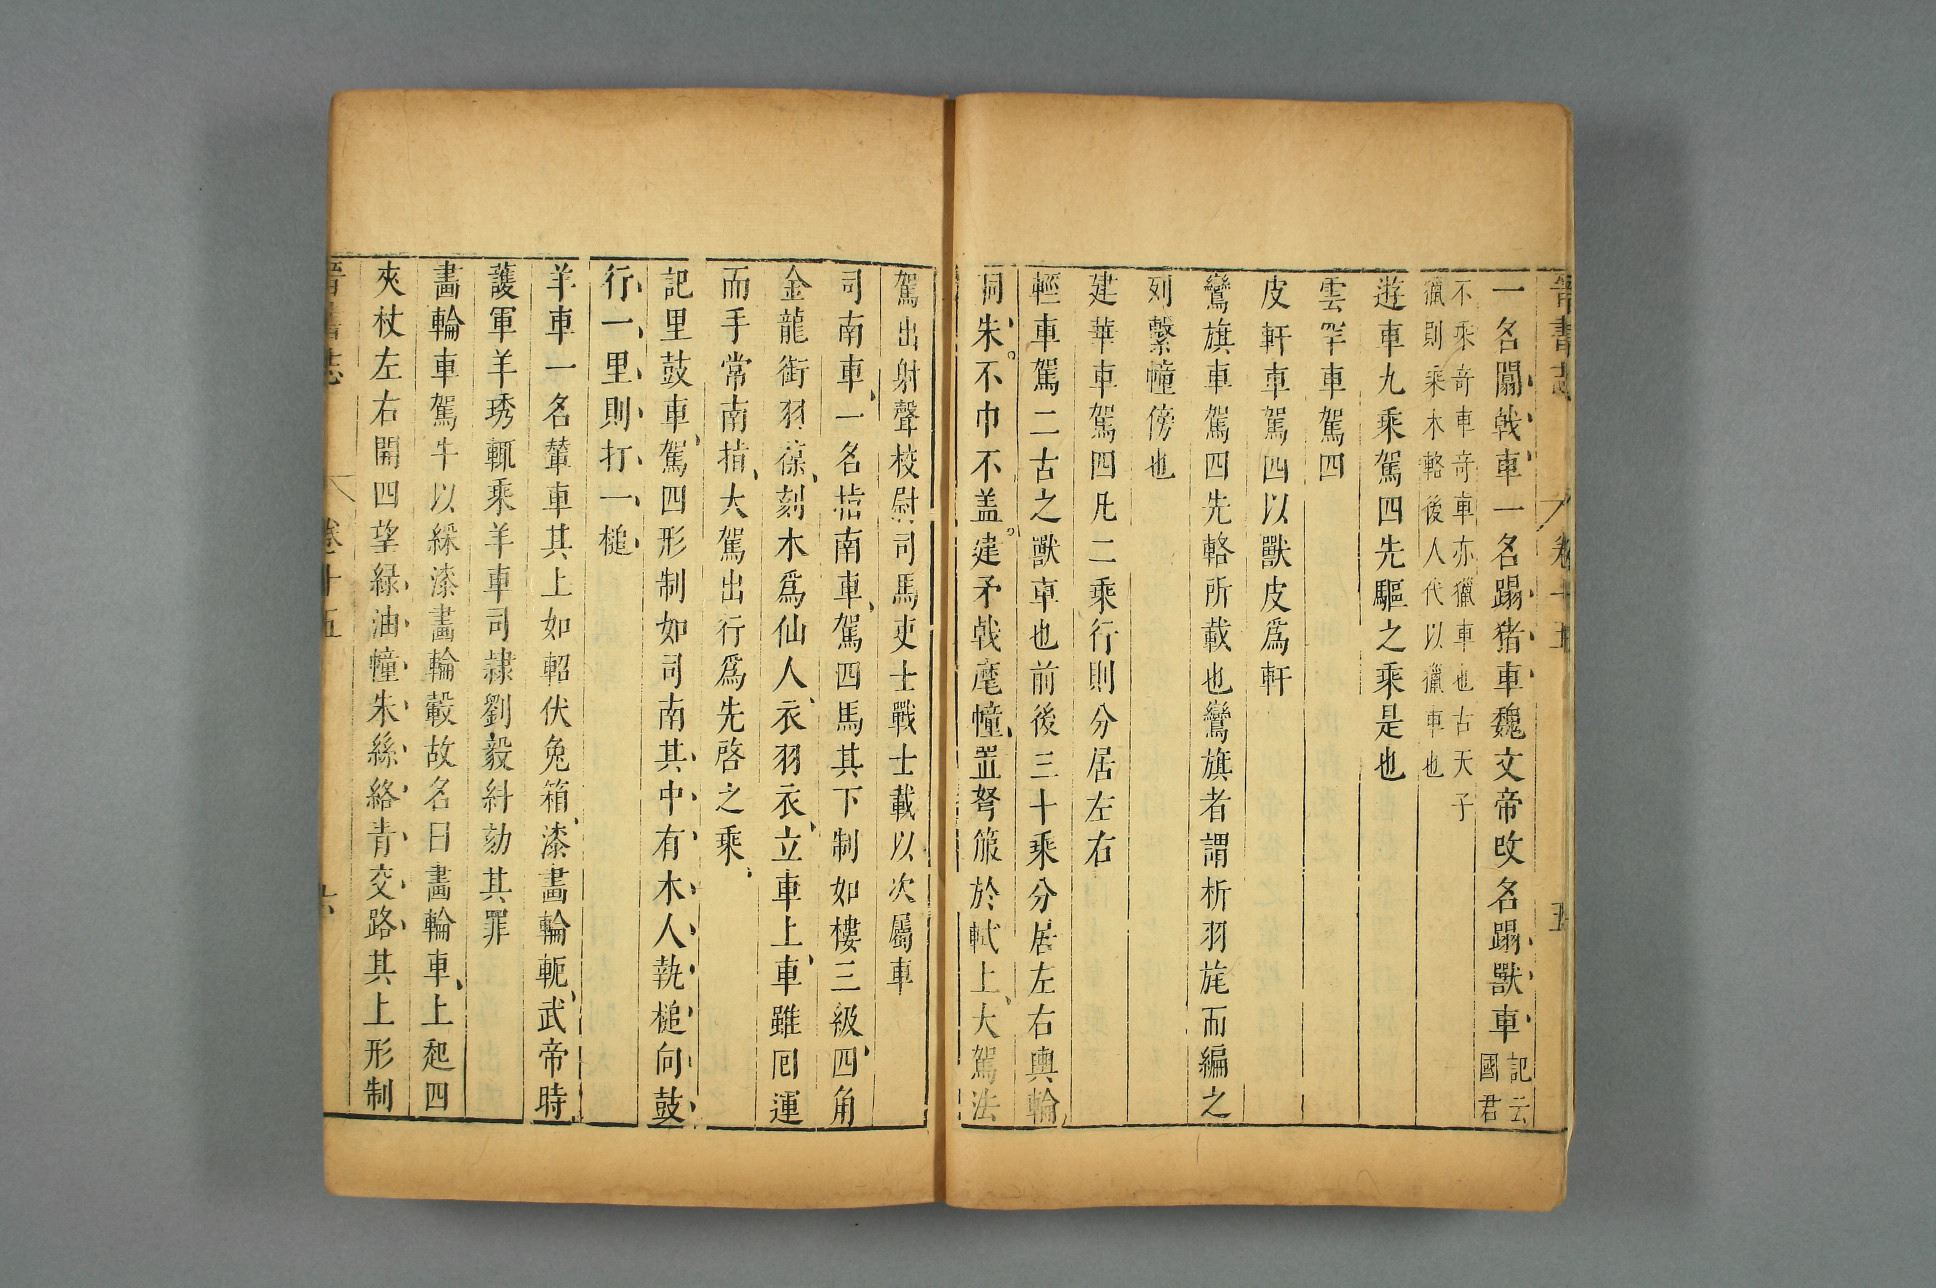 晉書志 卷十五 五
一名闟戟車一名蹋猪車魏文帝改名蹋獸車記云國君
不乘竒車竒車亦獵車也古天子
獵則乘木輅後人代以獵車也
遊車九乘駕四先驅之乘是也
雲罕車駕四
皮軒車駕四以獸皮爲軒
鸞旗車駕四先輅所載也鸞旗者謂析羽旄而編之
列繫幢傍也
建華車駕四凡二乘行則分居左右
輕車駕二古之獸車也前後三十乘分居左右輿輪
洞朱不巾不盖建矛戟麾幢置弩箙於軾上大駕法
駕出射聲校尉司馬吏士戰士載以次屬車
司南車一名指南車駕四馬其下制如樓三級四角
金龍銜羽葆刻木爲仙人衣羽衣立車上車雖囘運
而手常南指大駕出行爲先啓之乘
記里鼓車駕四形制如司南其中有木人執槌向鼓
行一里則打一槌
羊車一名輦車其上如軺伏兔箱漆畫輪軛武帝時
護軍羊琇輒乘羊車司隸劉毅糾劾其罪
畫輪車駕牛以綵漆畫輪轂故名曰畫輪車上起四
夾杖左右開四望緑油幢朱絲絡青交路其上形制
晉書志 卷十五 六